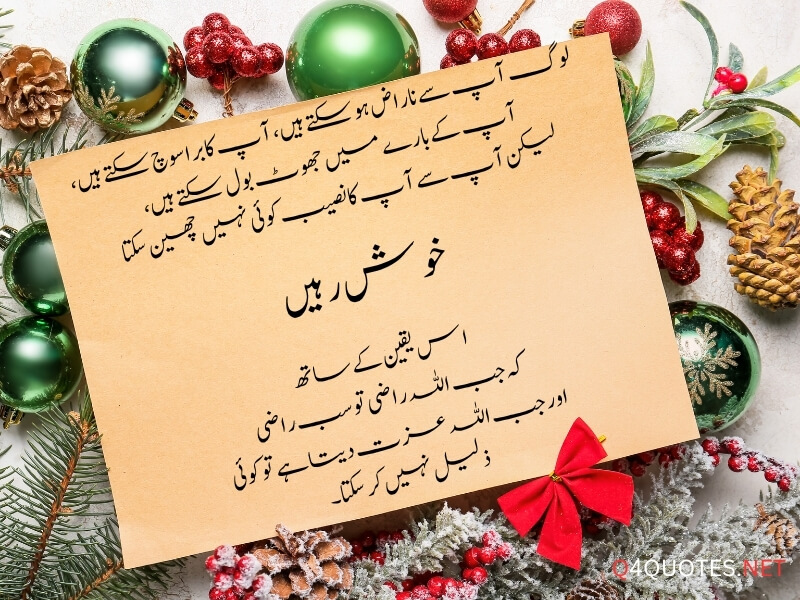 لوگ آپ سے ناراض ہو سکتے ہیں، آپ کا برا سوچ سکتے ہیں،
آپ کے بارے میں جھوٹ بول سکتے ہیں،
لیکن آپ سے آپ کا نصیب کوئی نہیں چھین سکتا
خوش رہیں
اس یقین کے ساتھ
کہ جب اللہ راضی تو سب راضی
اور جب اللہ عزت دیتا ہے تو کوئی
ذلیل نہیں کر سکتا۔
Q4QUOTES.NET